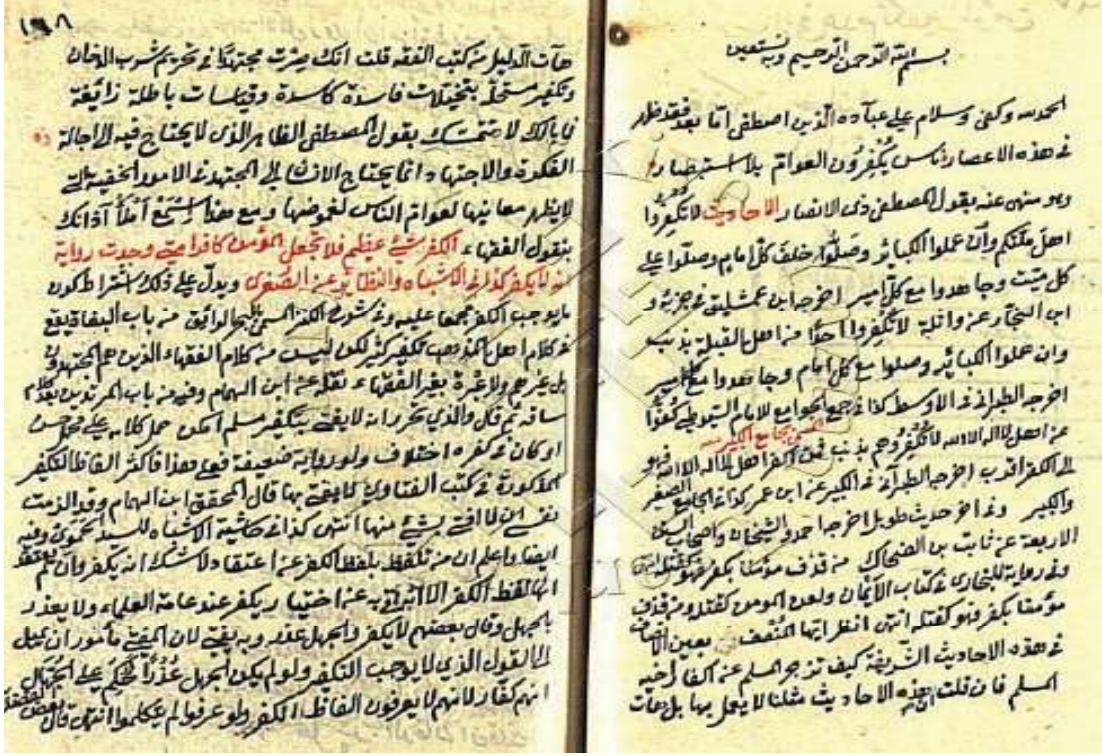 بسم الله الرحمن الرحيم وبه نستعين
الحمد لله وكفى وسلام على عباده الذين اصطفى اما بعد فقد ظهر
في هذه الاعصار ناس يكفرون العوام بلا استهضار
وهو منهى عنه بقول المصطفى ذى الانصار الاحاديث لا تكفروا
اهل ملتكم وان عملوا الكبائر وصلوا خلف كل امام وصلوا على
كل ميت وجاهدوا مع كل امير اخرجه ابن فى جزئه و
ابن النجار عن واثلة لا تكفروا احدا من اهل القبلة بذنب
وان عملوا الكبائر وصلوا مع كل امام وجاهدوا مع كل امير
اخرجه الطبرانى فى الاوسط كذا فى جمع الجوامع للامام السيوطى كفوا
المسمى بجامع الكبير
عن اهل لا اله الا الله لا تكفروهم بذنب فمن اكفر اهل لا اله الا الله فهو
الى الكفر اقرب اخرجه الطبرانى فى الكبير عن ابن عمر كذا فى الجامع الصغير
والكبير وفى اخر حديث طويل اخرجه احمد والشيخان واصحاب السنن
الاربعة عن ثابت بن الضحاك من قذف مؤمنا بكفر فهو كقتله انتهى
وفى رواية للبخارى فى كتاب الايمان ولعن المومن كقتله ومن قذف
مؤمنا بكفر فهو كقتله انتهى انظر ايها المنصف بعين الانصاف
فى هذه الاحاديث الشريفة كيف تزجر المسلم عن اكفار اخيه
المسلم فان قلت ان هذه الاحاديث مثلنا لا يعمل بها بل هات
١٩٨
هات الدليل من كتب الفقه قلت انك صرت مجتهدا فى تحريم شرب الدخان
وتكفير مستحله بتخيلات فاسدة كاسدة وقياسات باطلة زائغة
فما بالك لا تتمسك بقول المصطفى الظاهر الذى لا يحتاج فيه الى اجالة
الفكرة والاجتهاد انما يحتاج الانسان الى المجتهد فى الامور الخفية التى
لا يظهر معانيها لعوام الناس لغموضها ومع هذا استمع املأ آذانك
بنقول الفقهاء الكفر شىء عظيم فلا تجعل المؤمن كافرا متى وجدت رواية
انه لا يكفر كذا فى الاشباه والنظائر عن الصغرى ويدل على ذلك اشتراط كون
ما يوجب الكفر مجمعا عليه وفى شرح الكنز المسمى بالبحر الرائق من باب البغاة يقع
فى كلام اهل المذهب تكفير كثير لكن ليس من كلام الفقهاء الذين هم المجتهدون
بل غيرهم ولا عبرة بغير الفقهاء نقله عن ابن الهمام وفيه من باب المرتدين بعد كلام
ساقه ثم قال والذى تحرر انه لا يفتى بتكفير مسلم امكن حمل كلامه على محمل حسن
او كان فى كفره اختلاف ولو رواية ضعيفة فعلى هذا فاكثر الفاظ التكفير
المذكورة فى كتب الفتاوى لا يفتى بها قال المحقق ابن الهمام وقد الزمت
نفسى ان لا افتى بشىء منها انتهى كذا فى حاشية الاشباه للسيد الحموى وفيه
ايضا واعلم ان من تلفظ بلفظ الكفر عن اعتقاد لا شك انه يكفر وان لم يعتقد
انها لفظ الكفر الا انه اتى به عن اختيار يكفر عند عامة العلماء ولا يعذر
بالجهل وقال بعضهم لا يكفر والجهل عذر وبه يفتى لان المفتى مأمور ان يميل
الى القول الذى لا يوجب التكفير ولو لم يكن الجهل عذرا لحكم على الجهال
انهم كفار لانهم لا يعرفون الفاظ الكفر ولو عرفوا لم يتكلموا انتهى قال بعض